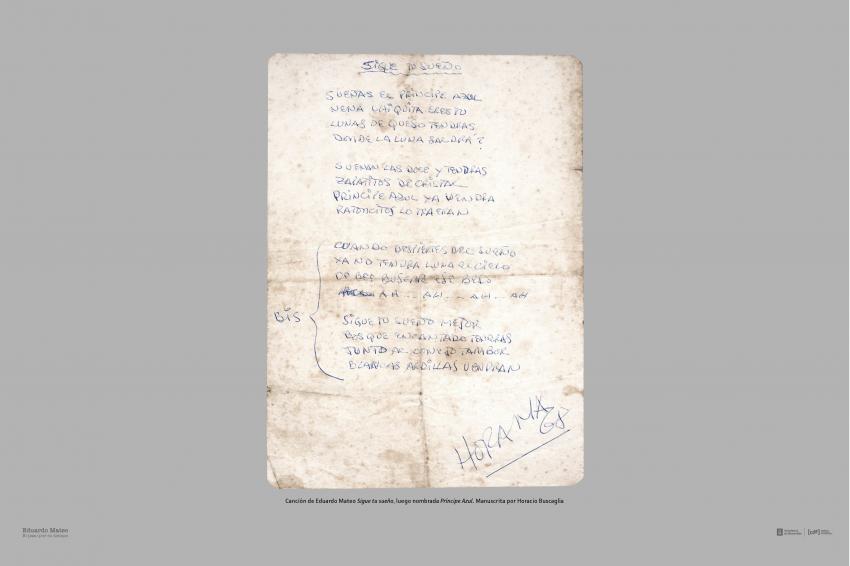 SIGUE TU SUEÑO
SUEÑAS EL PRINCIPE AZUL
NENA CHIQUITA ERES TU
LUNAS DE QUESO TENDRAS
DONDE LA LUNA SALDRÁ?
SUENAN LAS DOCE Y TENDRAS
ZAPATITOS DE CRISTAL
PRINCIPE AZUL YA VENDRA
RATONCITOS LO TRAERAN
CUANDO DESPIERTES DEL SUEÑO
YA NO TENDRA LUNA EL CIELO
BUSCAR ESE
AH... AH... AH... AH
BIS
SIGUE TU SUEÑO MEJOR
BOSQUE ENCANTADO TENDRAS
JUNTO AL CONEJO TAMBOR
BLANCAS ARDILLAS VENDRAN
HORA MA
68
Canción de Eduardo Mateo Sigue tu sueño, luego nombrada Príncipe Azul. Manuscrita por Horacio Buscaglia
Eduardo Mateo